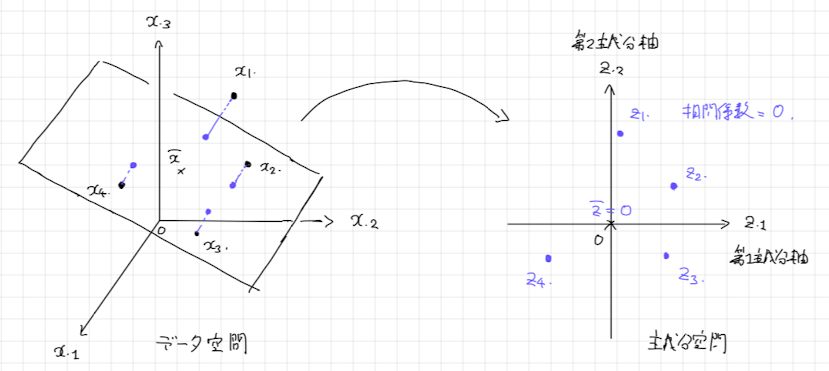 x.3
x1.
x̄
x2.
x4.
0
x.2
x3.
x.1
データ空間
第2主成分軸
z.2
z1.
相関係数 = 0.
z2.
z̄ = 0
z.1
0
第1主成分軸
z4.
z3.
主成分空間